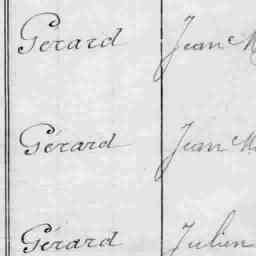 Gérard Jean M
Gérard Jean M
Gérard Julien